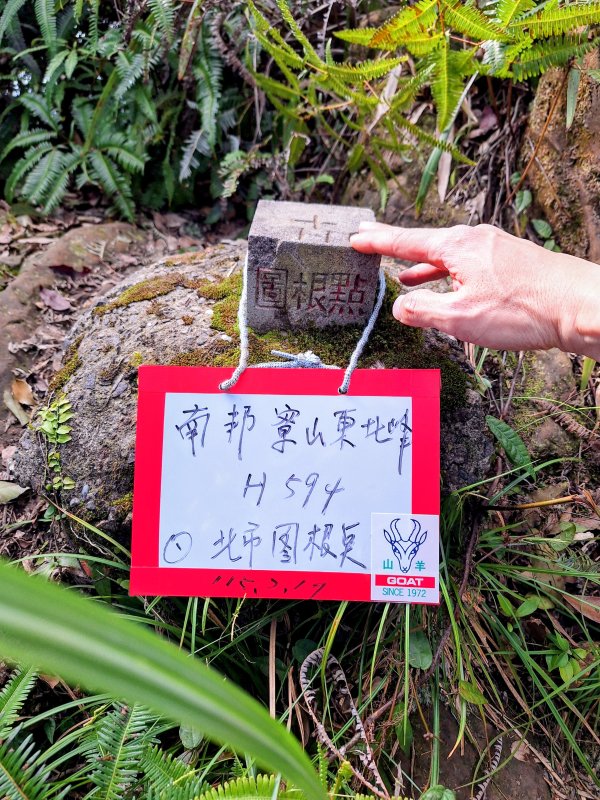 圖根點
南邦寮山東北峰
H 594
① 北市图根点
115.3.19
山羊
GOAT
SINCE 1972